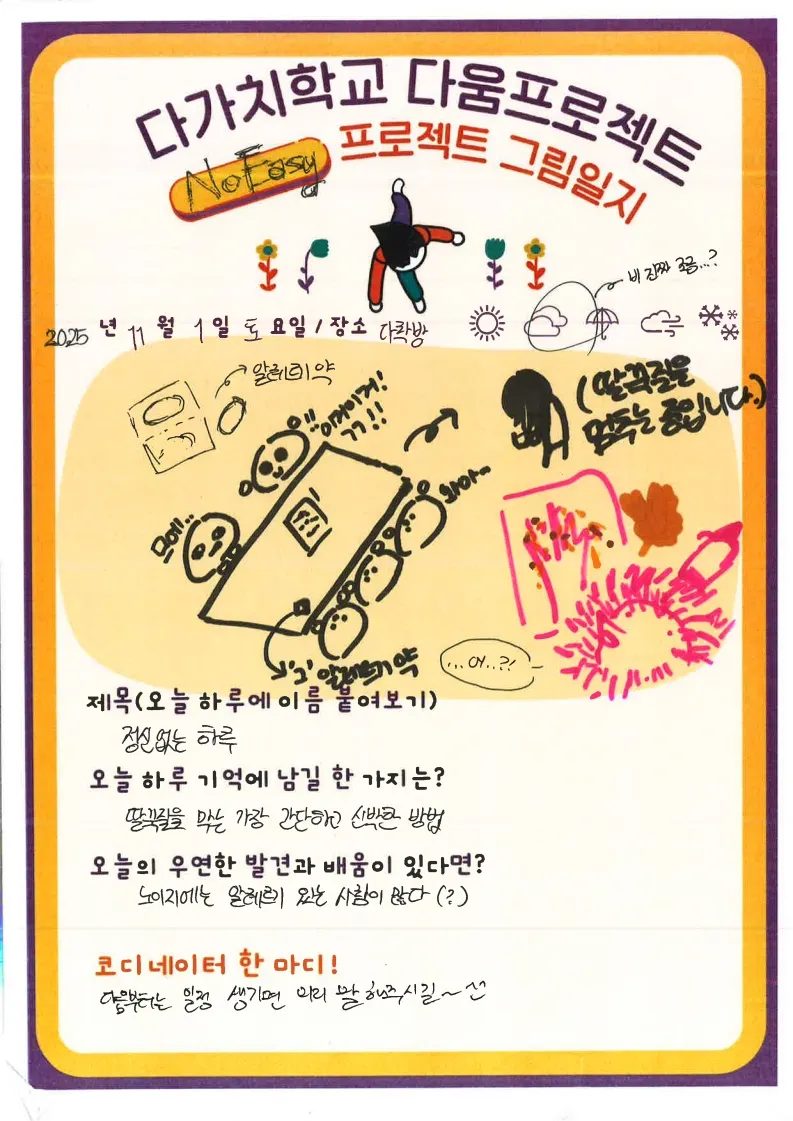 다가치학교 다움프로젝트
NoEasy 프로젝트 그림일지
비 진짜 조금...?
2025년 11월 1일 토요일 / 장소 다락방
알레르기 약
!! 이거이거! ㄱㄱ!!
(딸꾹질을 멈추는 중입니다.)
와아~
므에..
'그' 알레르기 약
...어..?!
제목(오늘 하루에 이름 붙여보기)
정신없는 하루
오늘 하루 기억에 남길 한 가지는?
딸꾹질을 막는 가장 간단하고 신박한 방법
오늘의 우연한 발견과 배움이 있다면?
노이지에는 알레르기 있는 사람이 많다 (?)
코디네이터 한 마디!
다음부터는 일정 생기면 미리 말 해주시길~